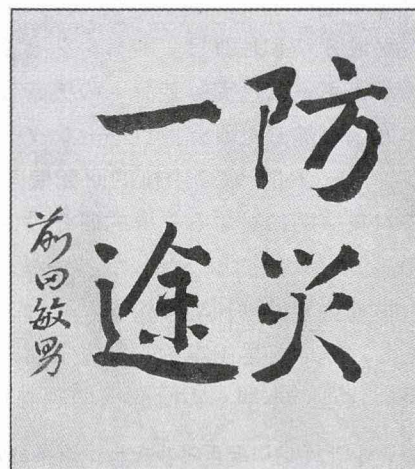 防災
一途
前田敏男